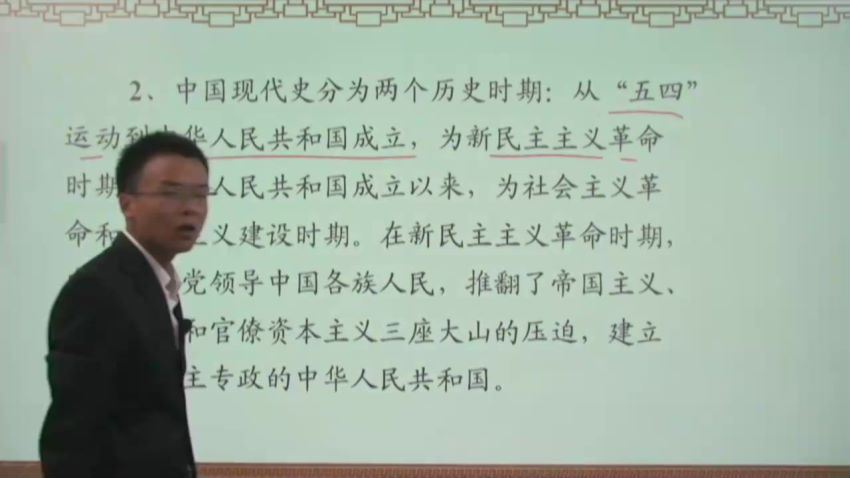 2、中国现代史分为两个历史时期：从“五四”
运动到 华人民共和国成立，为新民主主义革命
时期 人民共和国成立以来，为社会主义革
命和 义建设时期。在新民主主义革命时期，
党领导中国各族人民，推翻了帝国主义、
和官僚资本主义三座大山的压迫，建立
主专政的中华人民共和国。